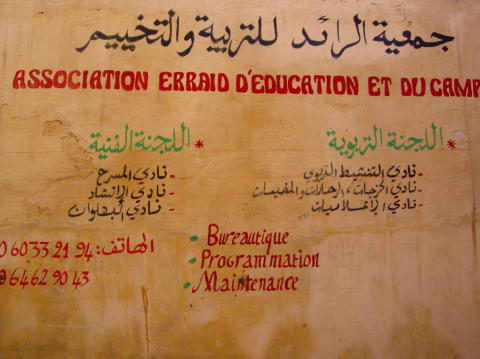 جمعية الرائد للتربية والتخييم
ASSOCIATION ERRAID D'EDUCATION ET DU CAMP
* اللجنة التربوية
- نادي التنشيط التربوي
- نادي الخرجات، الرحلات والمخيمات
- نادي الإعلاميات
* اللجنة الفنية
- نادي المسرح
- نادي الإنشاد
- نادي البهلوان
• Bureautique
• Programmation
• Maintenance
الهاتف: 0 60 33 21 94
0 64 62 90 43